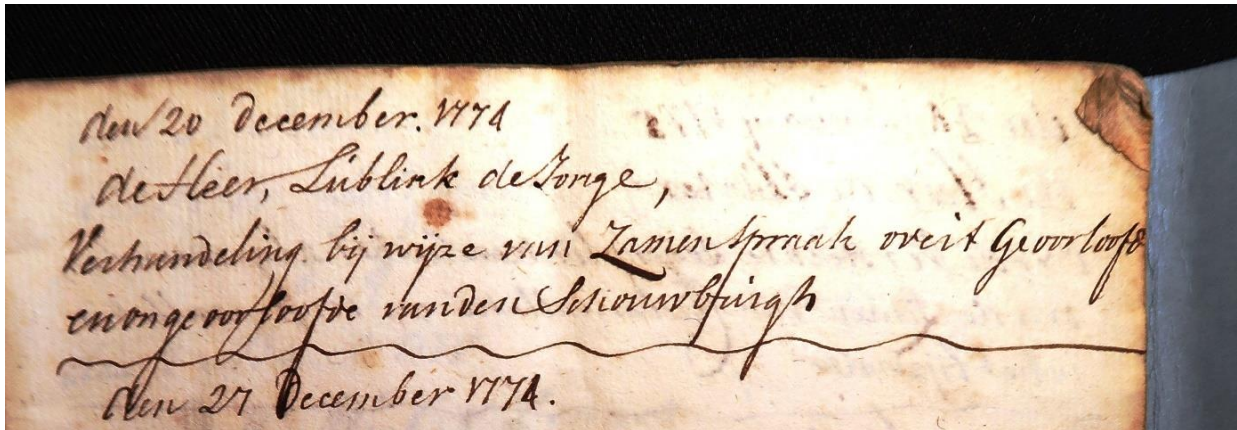 den 20 december. 1774
de Heer, Lublink de Jonge,
Verhandeling bij wijze van Zamenspraak over't Geoorloofde
en ongeoorloofde van den Schouwburgh
den 27 December 1774.